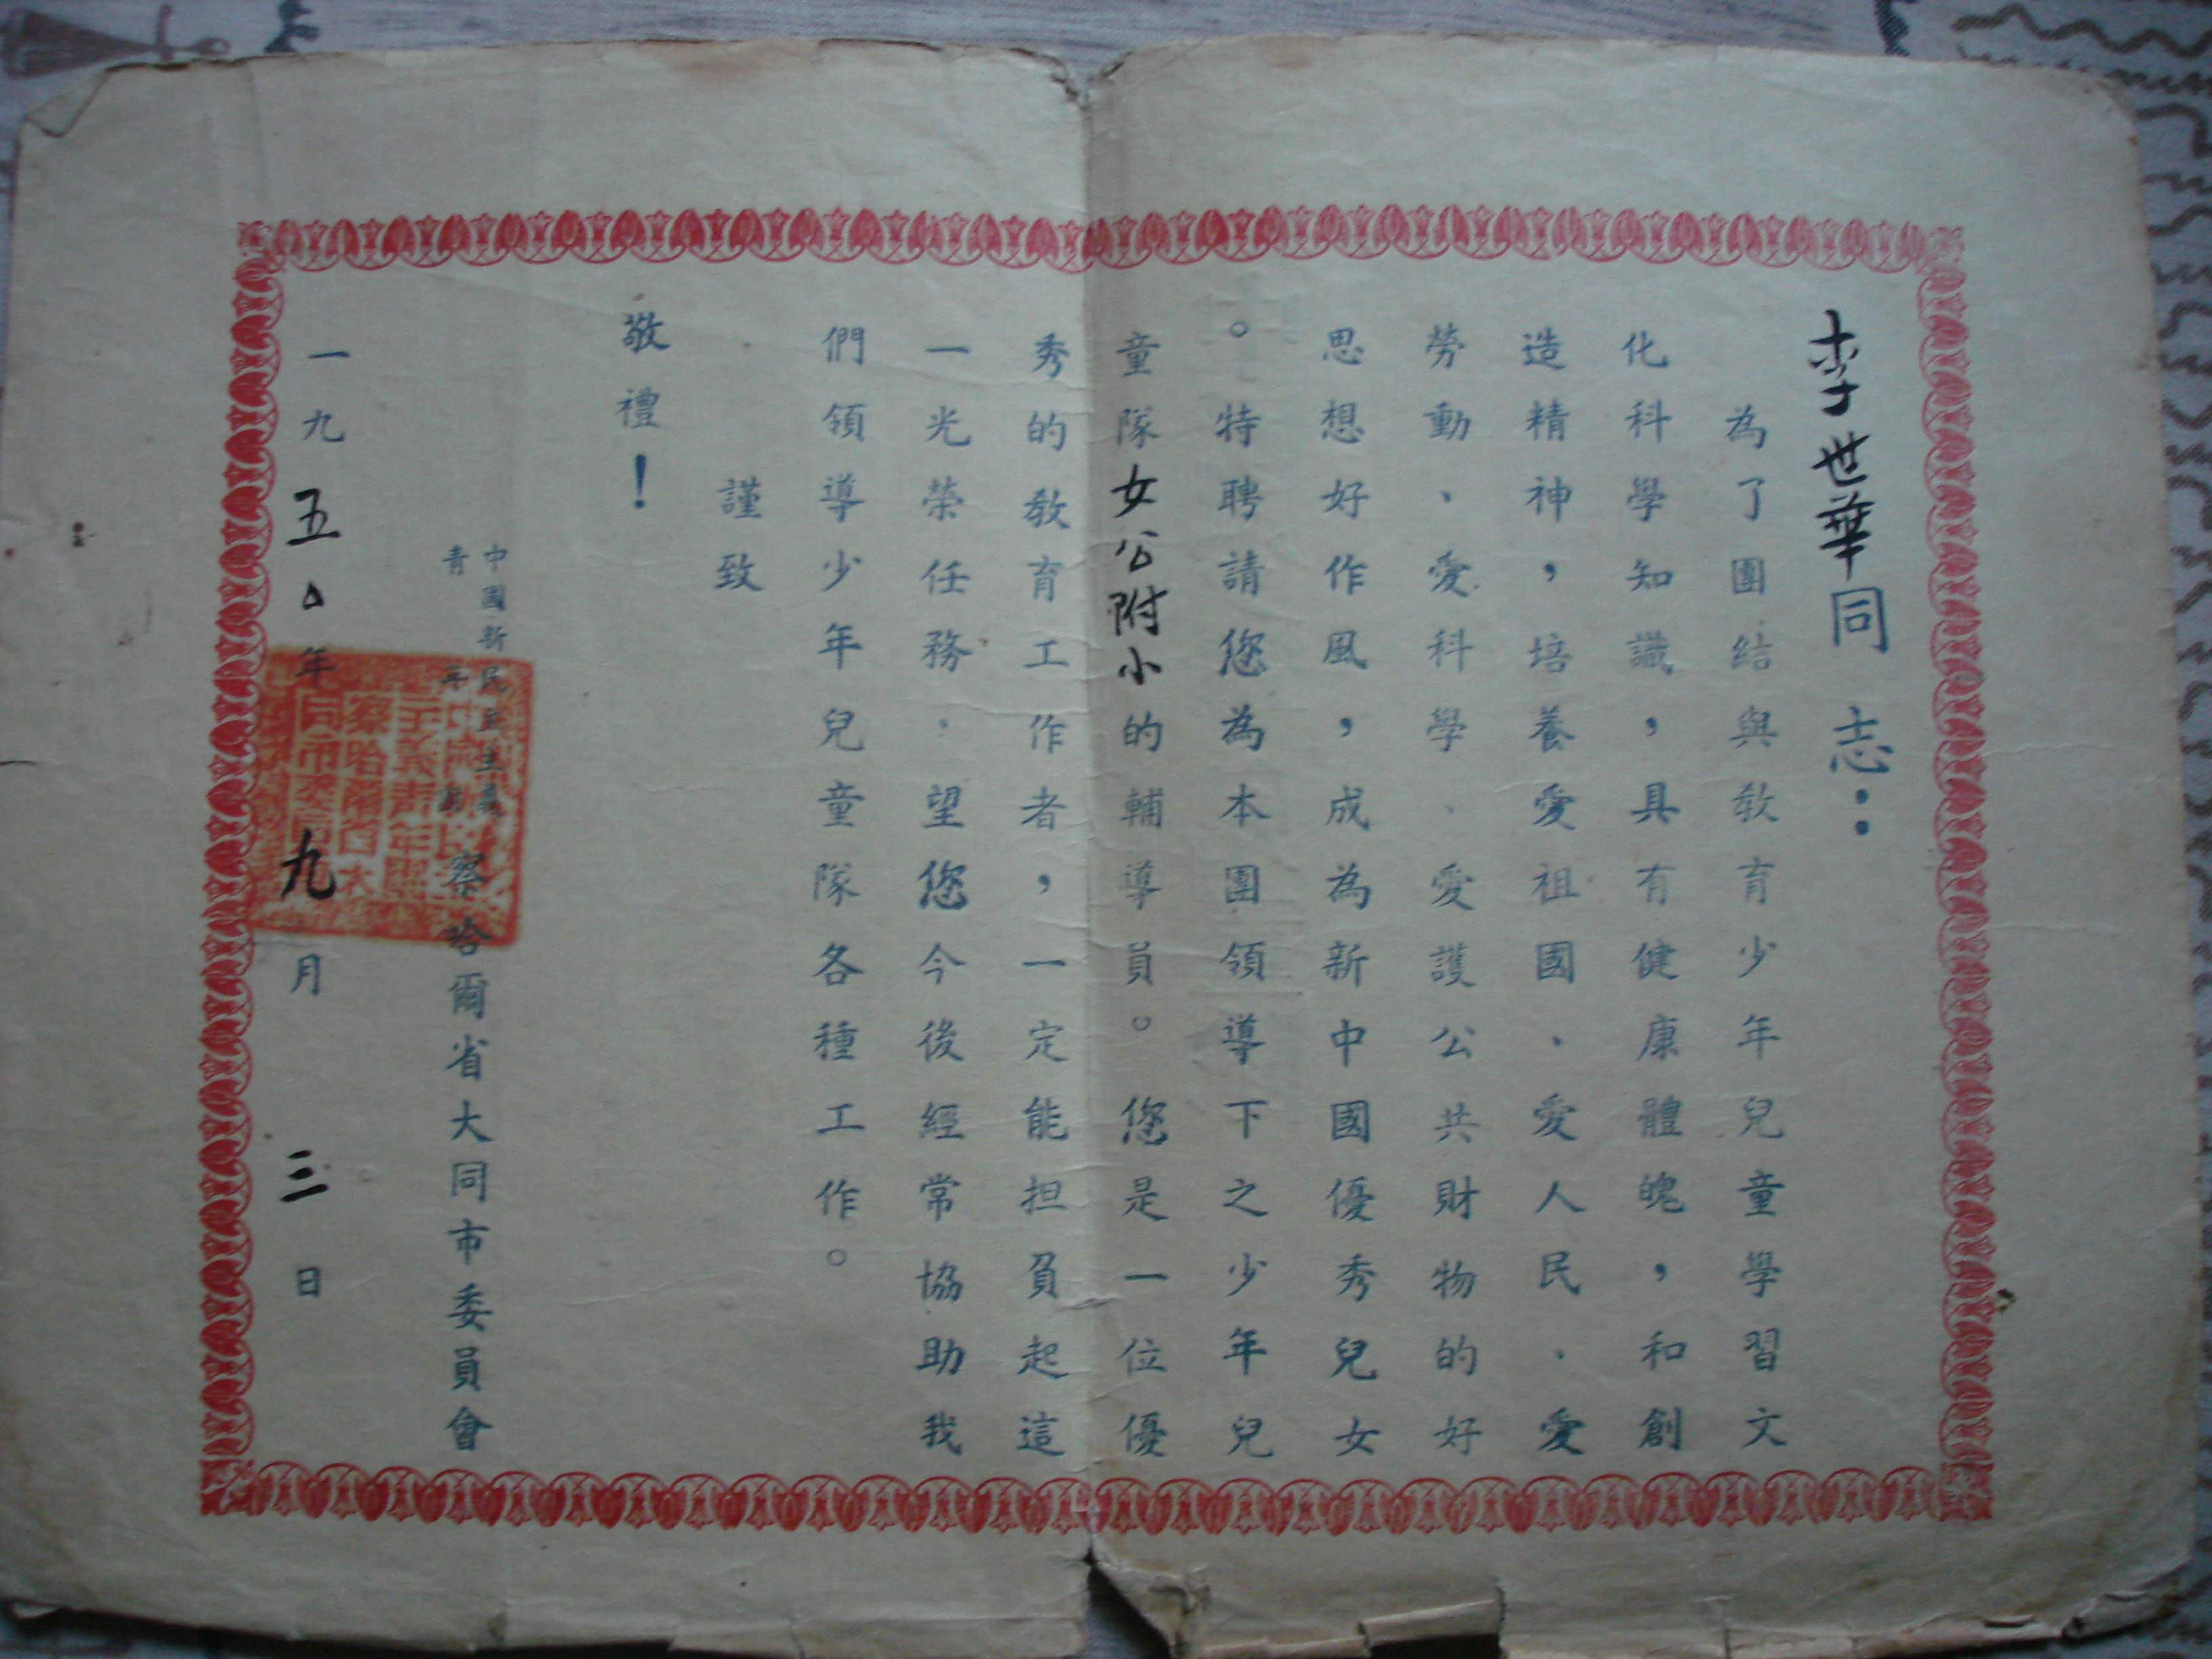 李世華同志：
為了團結與敎育少年兒童學習文
化科學知識，具有健康體魄，和創
造精神，培養愛祖國、愛人民、愛
勞動、愛科學、愛護公共財物的好
思想好作風，成為新中國優秀兒女
。特聘請您為本團領導下之少年兒
童隊女公附小的輔導員。您是一位優
秀的敎育工作者，一定能担負起這
一光榮任務、望您今後經常協助我
們領導少年兒童隊各種工作。
謹致
敬禮！
中國新民主主義
青年團
察哈爾省大同市委員會
一九五〇年九月三日